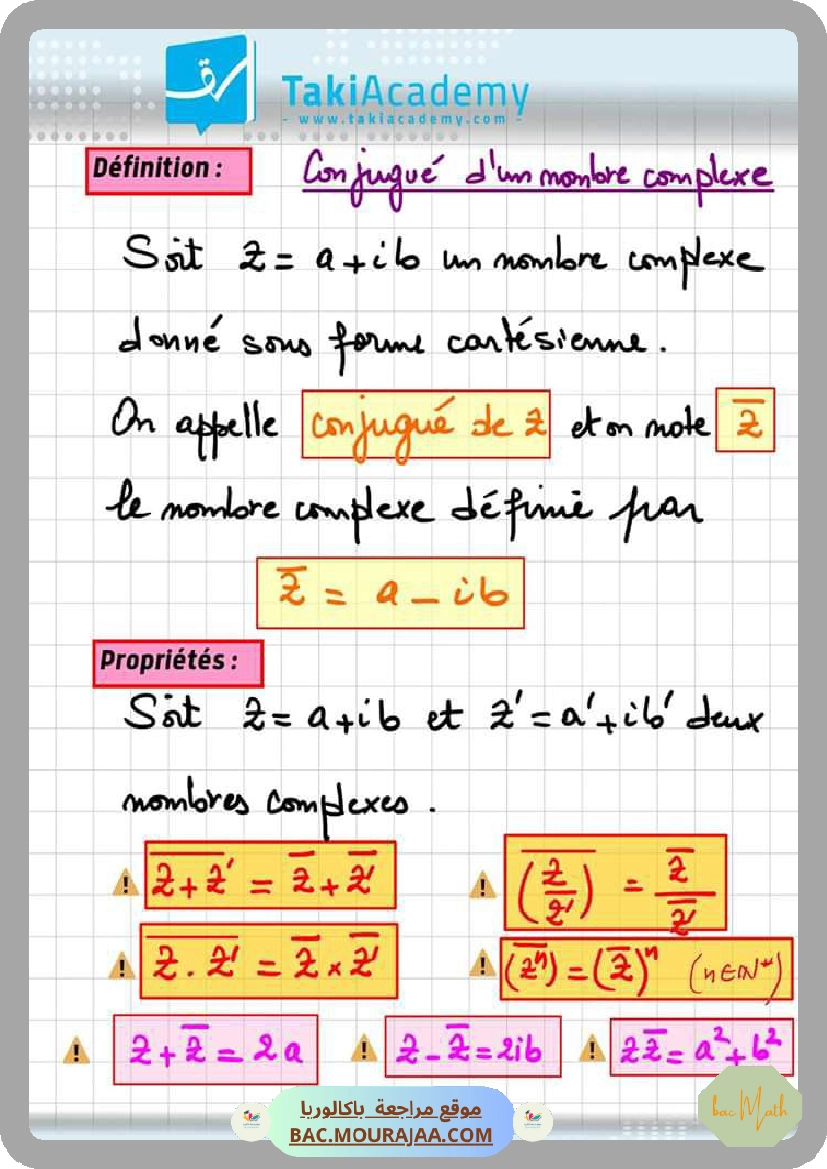 TakiAcademy
- www.takiacademy.com -
Définition :
Conjugué d'un nombre complexe
Soit z = a + ib un nombre complexe
donné sous forme cartésienne.
On appelle conjugué de z et on note z̅
le nombre complexe définie par
z̅ = a - ib
Propriétés :
Soit z = a + ib et z' = a' + ib' deux
nombres complexes.
⚠ \overline{z + z'} = \overline{z} + \overline{z'}
⚠ \overline{(\frac{z}{z'})} = \frac{\overline{z}}{\overline{z'}}
⚠ \overline{z . z'} = \overline{z} × \overline{z'}
⚠ (\overline{z^n}) = (\overline{z})^n (n ∈ ℕ*)
⚠ z + z̅ = 2a
⚠ z - z̅ = 2ib
⚠ z z̅ = a² + b²
موقع مراجعة باكالوريا
BAC.MOURAJAA.COM
bac Math